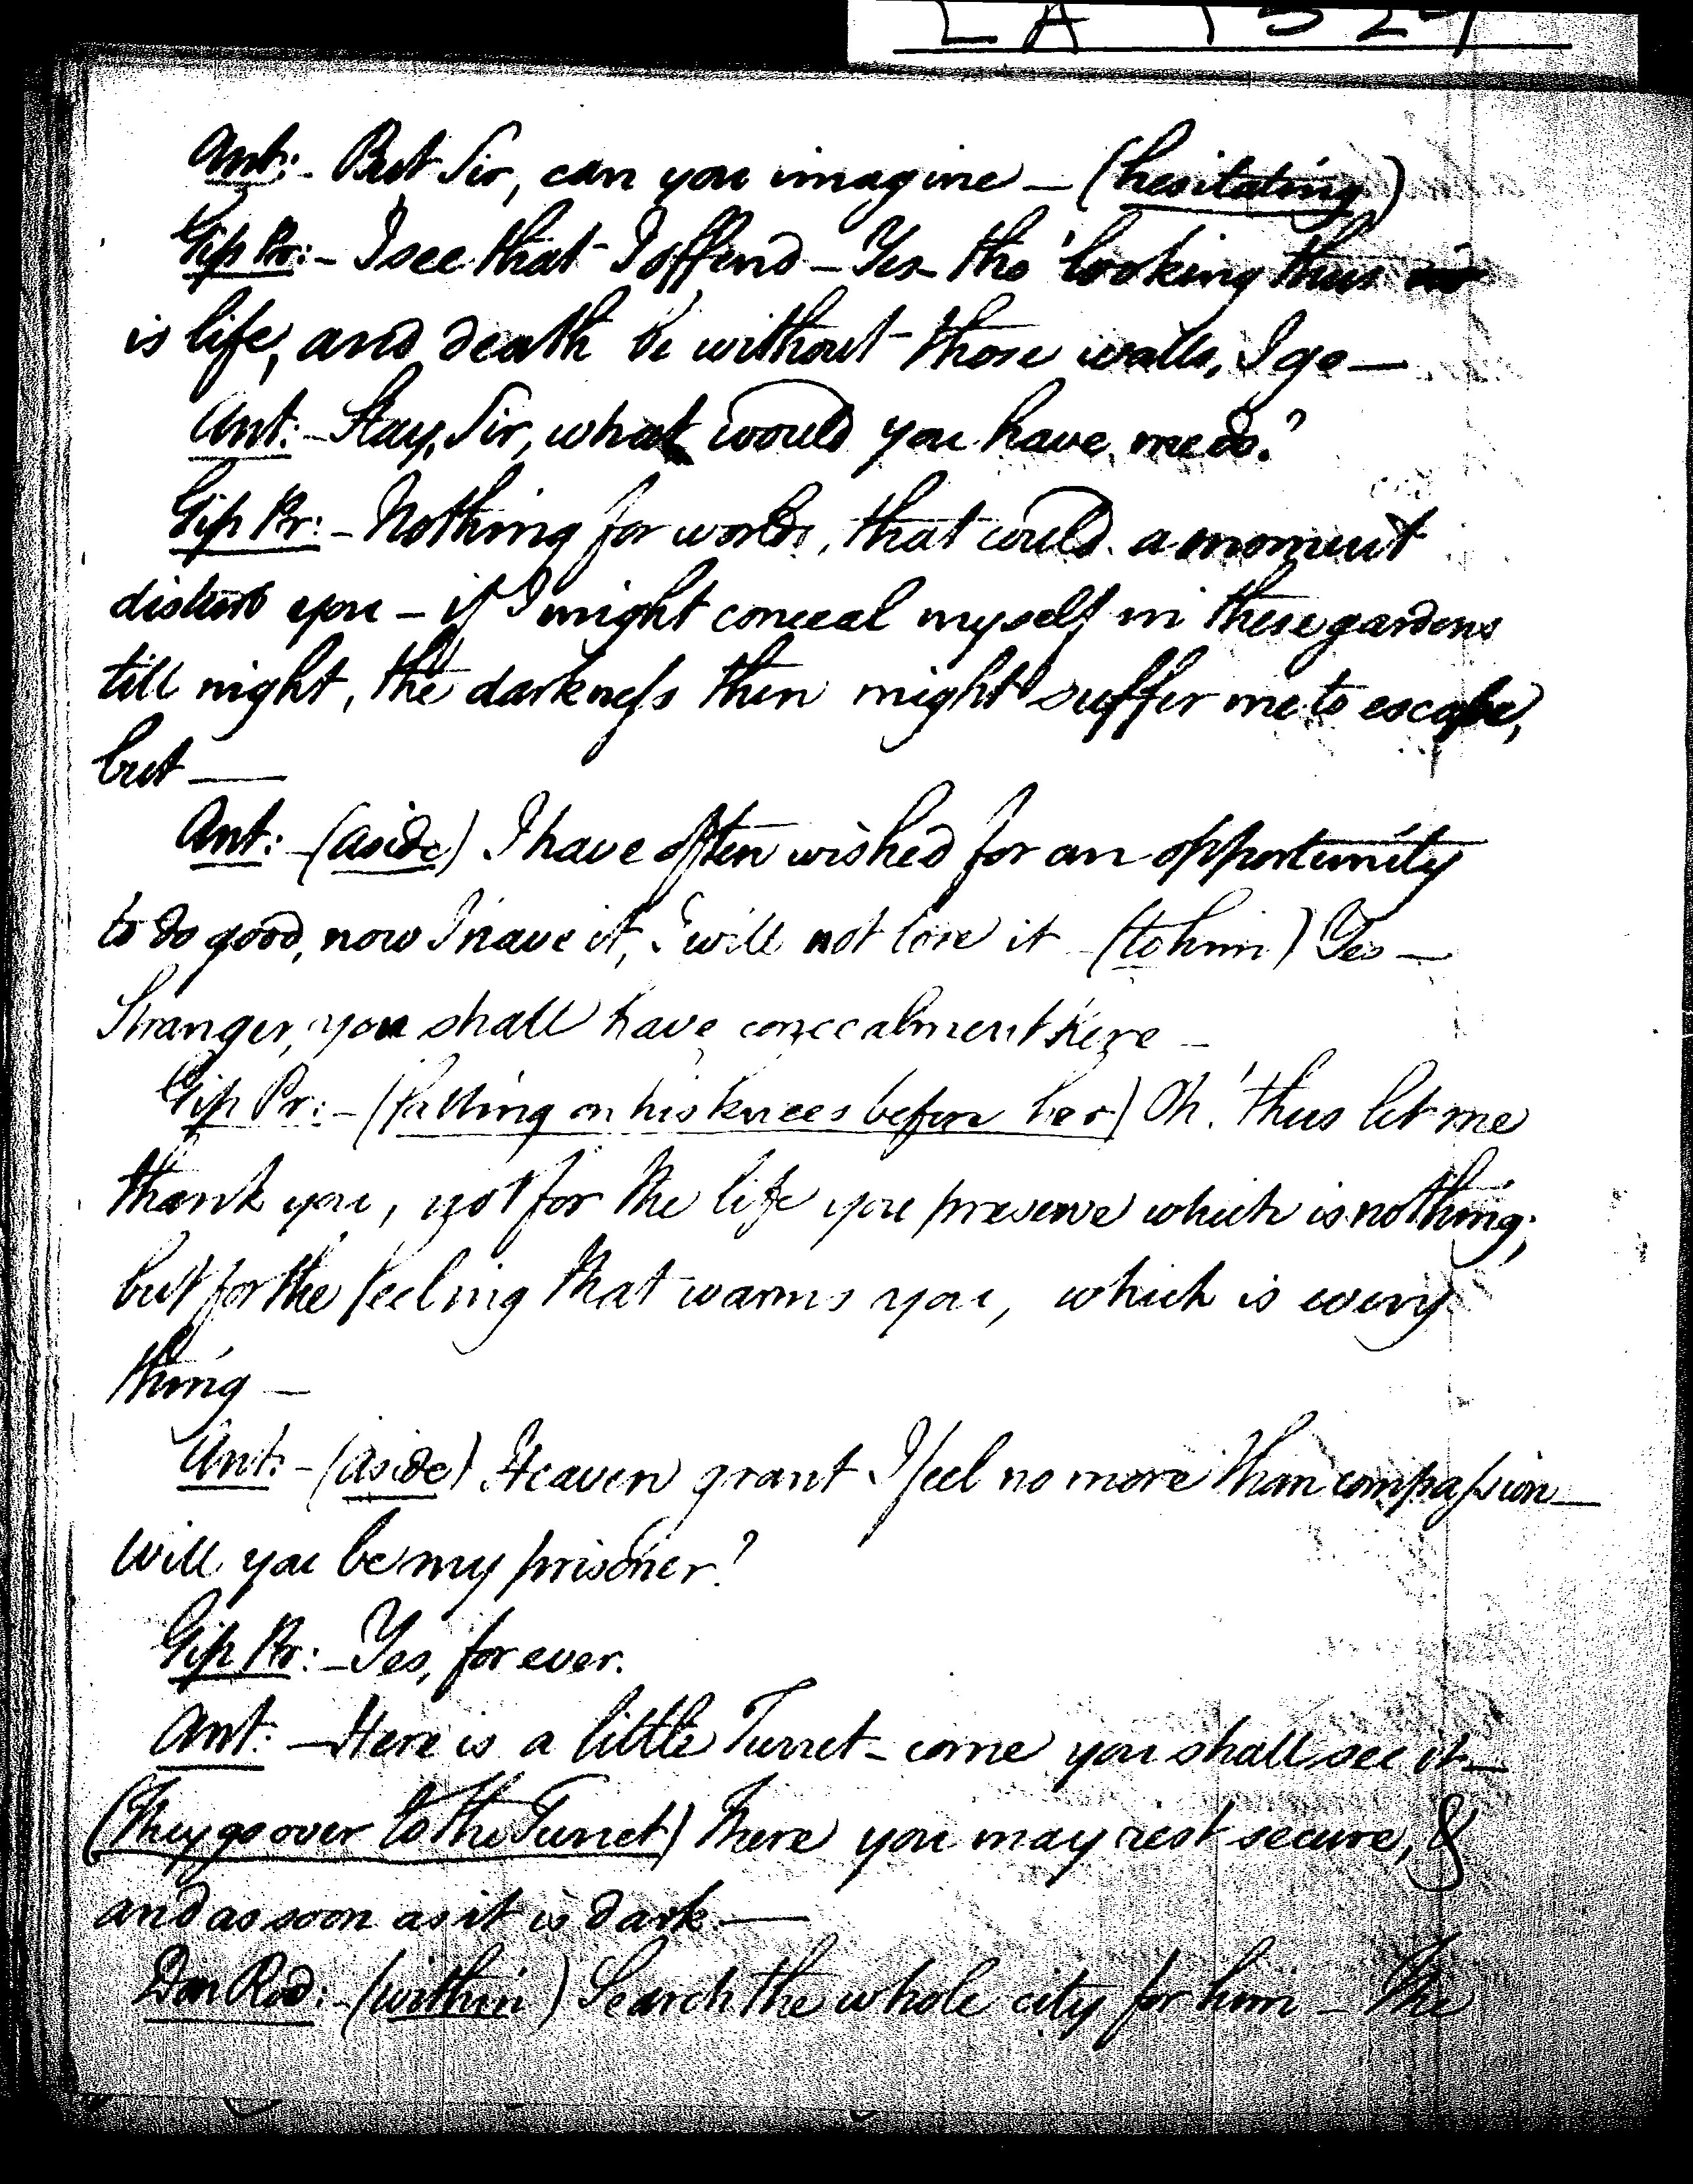 LA 1324
Ant: - But Sir, can you imagine - (hesitating)
Gip Pr: - I see that I offend - Yes - tho' looking thus
is life, and death be without those walls, I go -
Ant: - Stay, Sir, what would you have me do?
Gip Pr: - Nothing for worlds, that could a moment
disturb you - if I might conceal myself in these gardens
till night, the darkness then might suffer me to escape,
but -
Ant: - (aside) I have often wished for an opportunity
to do good, now I have it, I will not lose it - (to him) Yes -
Stranger, you shall have concealment here -
Gip Pr: - (falling on his knees before her) Oh! thus let me
thank you, not for the life you preserve which is nothing;
but for the feeling that warms you, which is every
thing -
Ant: - (aside) Heaven grant I feel no more than compassion -
will you be my prisoner?
Gip Pr: - Yes, for ever.
Ant: - Here is a little Turret - come you shall see it -
(They go over to the Turret) There you may rest secure, &
and as soon as it is dark -
Don Rod: - (within) Search the whole city for him - The